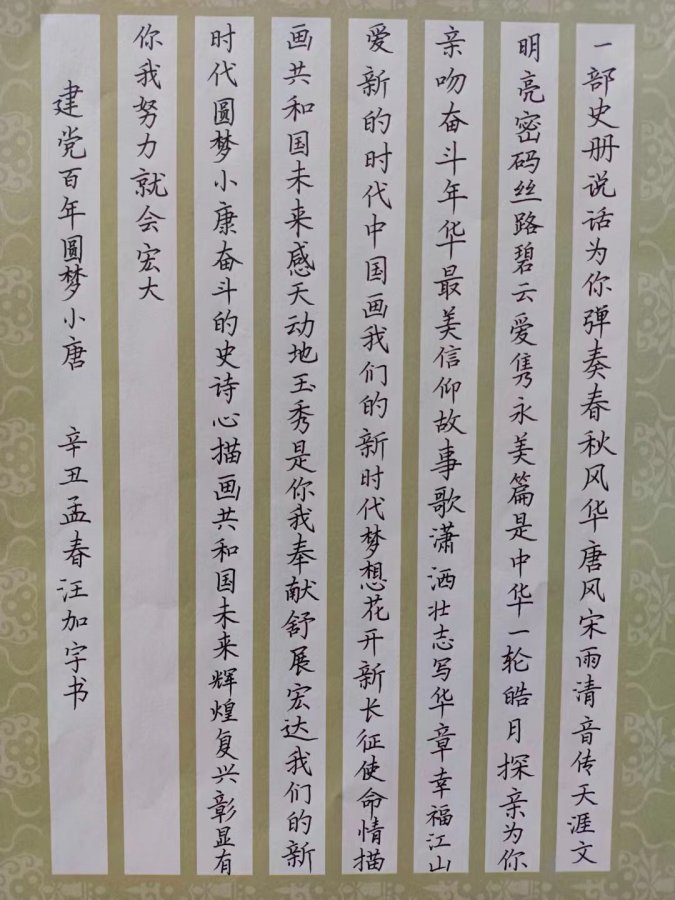 一部史册说话为你弹奏春秋风华唐风宋雨清音传天涯文
明亮密码丝路碧云爱隽永美篇是中华一轮皓月探亲为你
亲吻奋斗年华最美信仰故事歌潇洒壮志写华章幸福江山
爱新的时代中国画我们的新时代梦想花开新长征使命情描
画共和国未来感天动地玉秀是你我奉献舒展宏达我们的新
时代圆梦小康奋斗的史诗心描画共和国未来辉煌复兴彰显有
你我努力就会宏大
建党百年圆梦小唐 辛丑孟春汪加字书